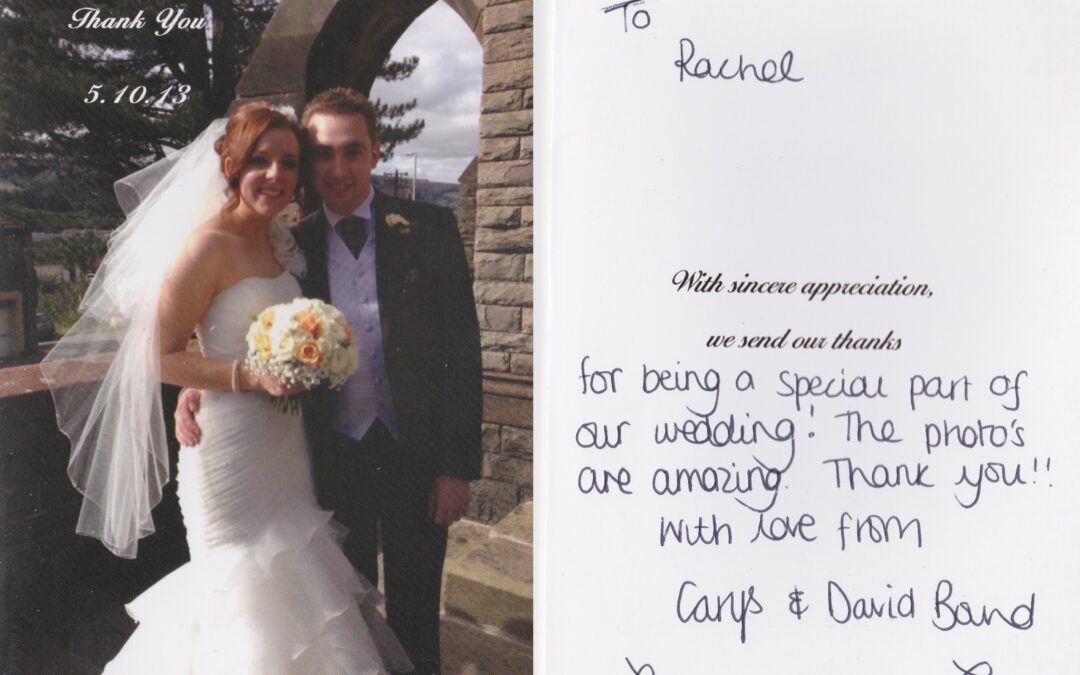 Thank You
5.10.13
To
Rachel
With sincere appreciation,
we send our thanks
for being a special part of
our wedding! The photo's
are amazing. Thank you!!
With love from
Carys & David Band